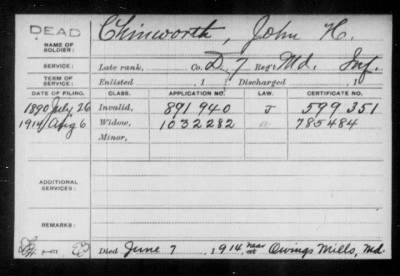 DEAD
NAME OF SOLDIER: Chinworth, John H.
SERVICE: Late rank, Co. D, 7 Reg't Md. Inf.
TERM OF SERVICE: Enlisted , 1 Discharged , 1
DATE OF FILING. CLASS. APPLICATION NO. LAW. CERTIFICATE NO.
1890 July 26 Invalid, 891940 J 599351
1914 Aug 6 Widow, 1032282 785484
Minor,
ADDITIONAL SERVICES:
REMARKS:
Died June 7, 1914, near at Owings Mills, Md.